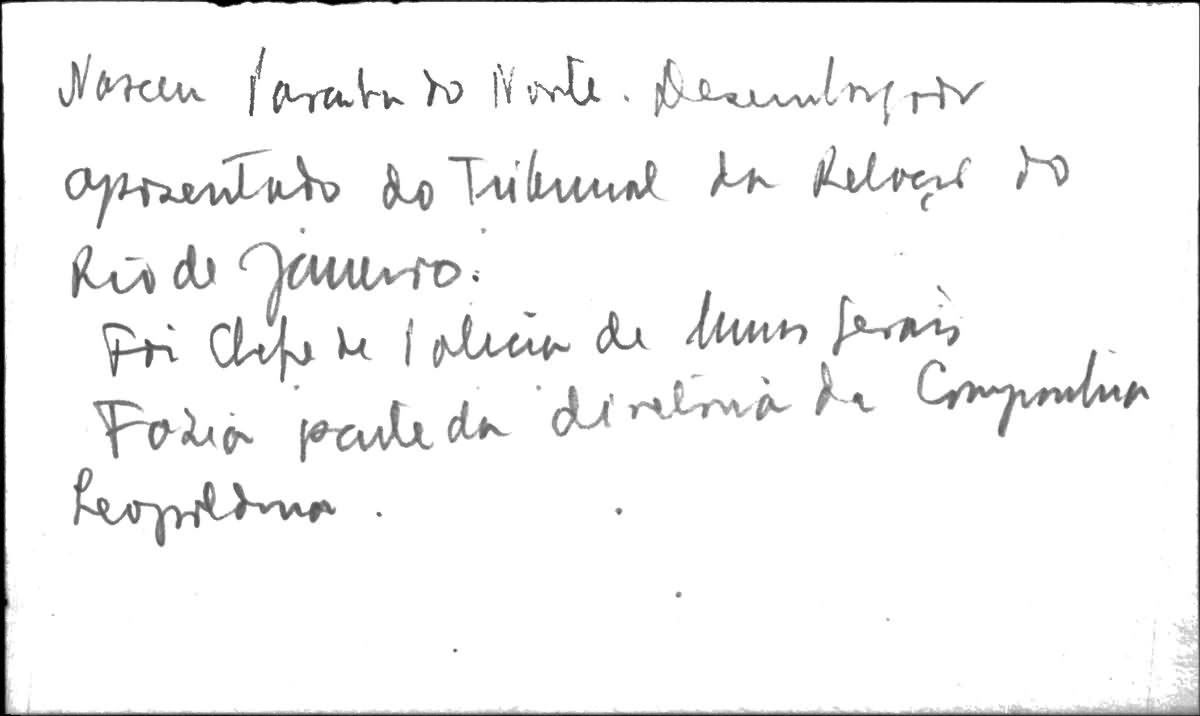 Nasceu Paraíba do Norte. Desembargador
aposentado do Tribunal da Relação do
Rio de Janeiro.
Foi Chefe de Policia de Minas Gerais
Fazia parte da diretoria da Companhia
Leopoldina.